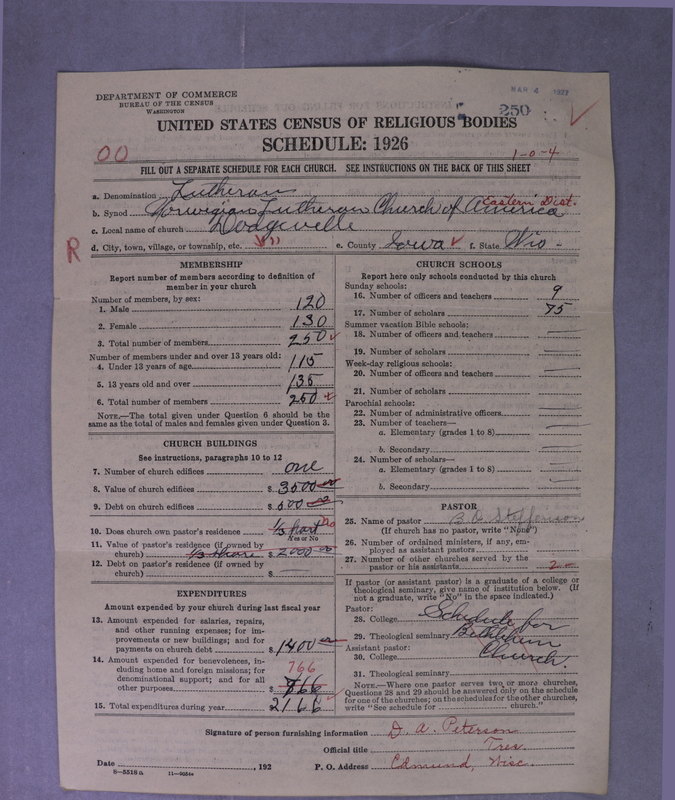 DEPARTMENT OF COMMERCE
BUREAU OF THE CENSUS
WASHINGTON
MAR 4 1927
250
UNITED STATES CENSUS OF RELIGIOUS BODIES
SCHEDULE: 1926
00
1-0-4
FILL OUT A SEPARATE SCHEDULE FOR EACH CHURCH. SEE INSTRUCTIONS ON THE BACK OF THIS SHEET
a. Denomination Lutheran
b. Synod Norwigian Lutheran Church of America Eastern Dist.
c. Local name of church Dodgeville
R
d. City, town, village, or township, etc. e. County Iowa f. State Wis.
MEMBERSHIP
Report number of members according to definition of
member in your church
Number of members, by sex:
1. Male 120
2. Female 130
3. Total number of members 250
Number of members under and over 13 years old:
4. Under 13 years of age 115
5. 13 years old and over 135
6. Total number of members 250
NOTE.—The total given under Question 6 should be
the same as the total of males and females given under Question 3.
CHURCH BUILDINGS
See instructions, paragraphs 10 to 12
7. Number of church edifices one
8. Value of church edifices $ 3500
9. Debt on church edifices $ 600
10. Does church own pastor's residence 1/3 part no
Yes or No
11. Value of pastor's residence (if owned by
church) 1/3 share $ 2000
12. Debt on pastor's residence (if owned by
church) $
EXPENDITURES
Amount expended by your church during last fiscal year
13. Amount expended for salaries, repairs,
and other running expenses; for im-
provements or new buildings; and for
payments on church debt $ 1400
14. Amount expended for benevolences, in-
cluding home and foreign missions; for
denominational support; and for all
other purposes $ 766
766
15. Total expenditures during year $ 2166
CHURCH SCHOOLS
Report here only schools conducted by this church
Sunday schools:
16. Number of officers and teachers 9
17. Number of scholars 75
Summer vacation Bible schools:
18. Number of officers and teachers
19. Number of scholars
Week-day religious schools:
20. Number of officers and teachers
21. Number of scholars
Parochial schools:
22. Number of administrative officers
23. Number of teachers—
a. Elementary (grades 1 to 8)
b. Secondary
24. Number of scholars—
a. Elementary (grades 1 to 8)
b. Secondary
PASTOR
25. Name of pastor
(If church has no pastor, write "None")
26. Number of ordained ministers, if any, em-
ployed as assistant pastors
27. Number of other churches served by the
pastor or his assistants 2
If pastor (or assistant pastor) is a graduate of a college or
theological seminary, give name of institution below. (If
not a graduate, write "No" in the space indicated.)
Pastor:
28. College Schedule for
29. Theological seminary Bethlehem
Assistant pastor:
30. College Church.
31. Theological seminary
NOTE.—Where one pastor serves two or more churches,
Questions 28 and 29 should be answered only on the schedule
for one of the churches; on the schedules for the other churches,
write "See schedule for church."
Signature of person furnishing information D. A. Peterson
Official title Tres.
Date , 192 P. O. Address Edmund, Wisc.
8—5518a 11—9034c